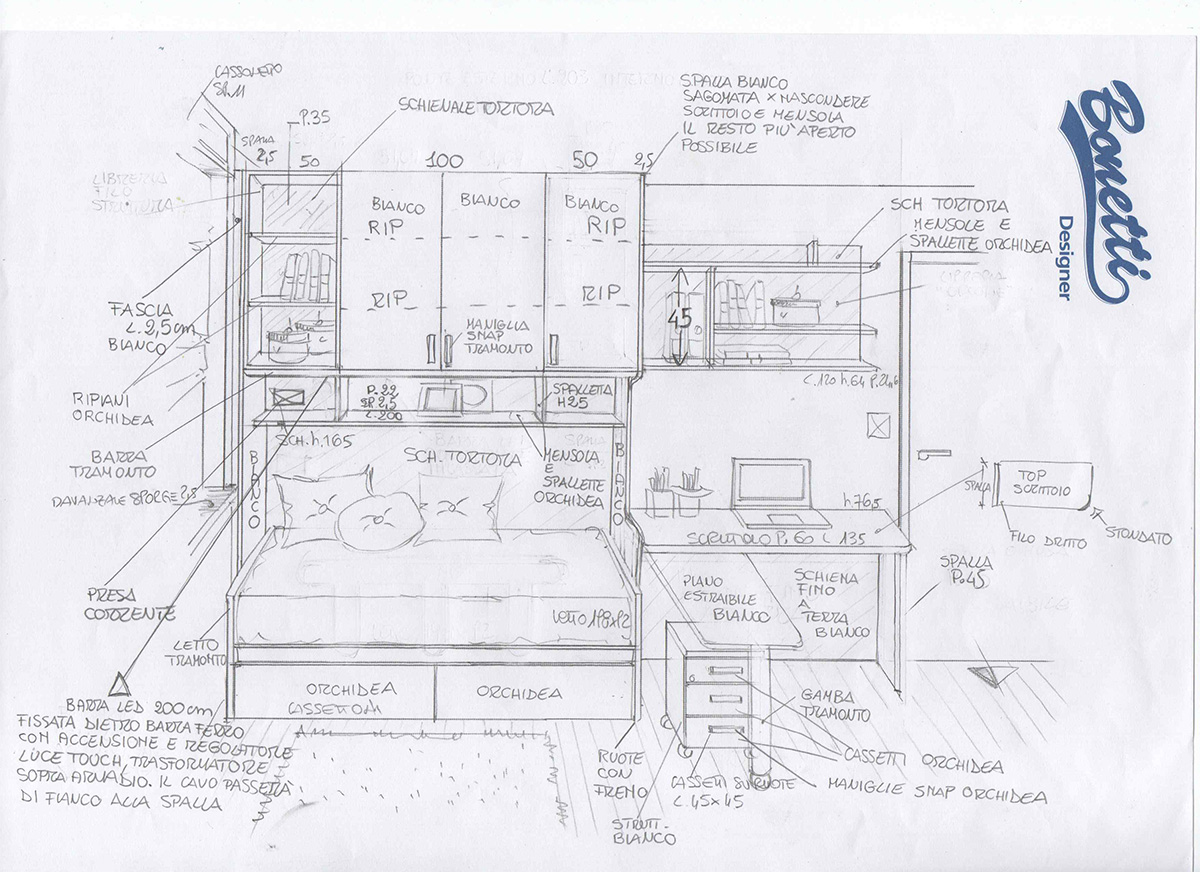 CASSONETTO
SP.11
SCHIENALE TORTORA
P.35
SPALLA
2,5
50
100
50
2,5
SPALLA BIANCO
SAGOMATA X NASCONDERE
SCRITTOIO E MENSOLA
IL RESTO PIU' APERTO
POSSIBILE
Bonetti
Designer
LIBRERIA
FILO
STRUTTURA
BIANCO
RIP
RIP
BIANCO
BIANCO
RIP
RIP
MANIGLIA
SNAP
TRAMONTO
SCH TORTORA
MENSOLE E
SPALLETTE ORCHIDEA
45
L.120 h.64 P.21,6
FASCIA
L. 2,5 cm
BIANCO
RIPIANI
ORCHIDEA
BARRA
TRAMONTO
DAVANZALE SPORGE 2,5
PRESA
CORRENTE
P.22
SP.2,5
L.200
SPALLETTA
H25
SCH. h.165
SCH. TORTORA
MENSOLA
E
SPALLETTE
ORCHIDEA
BIANCO
BIANCO
h.76,5
SCRITTOIO P.60 L 135
SPALLA
TOP
SCRITTOIO
FILO DRITTO
STONDATO
SPALLA
P.45
PIANO
ESTRAIBILE
BIANCO
SCHIENA
FINO
A
TERRA
BIANCO
LETTO 198x82
LETTO
TRAMONTO
ORCHIDEA
CASSETTONI
ORCHIDEA
BARRA LED 200 cm
FISSATA DIETRO BARRA FERRO
CON ACCENSIONE E REGOLATORE
LUCE TOUCH, TRASFORMATORE
SOPRA ARMADIO. IL CAVO PASSERA
DI FIANCO ALLA SPALLA
RUOTE
CON
FRENO
STRUTT.
BIANCO
CASSETTI SU RUOTE
L.45x45
GAMBA
TRAMONTO
CASSETTI ORCHIDEA
MANIGLIE SNAP ORCHIDEA